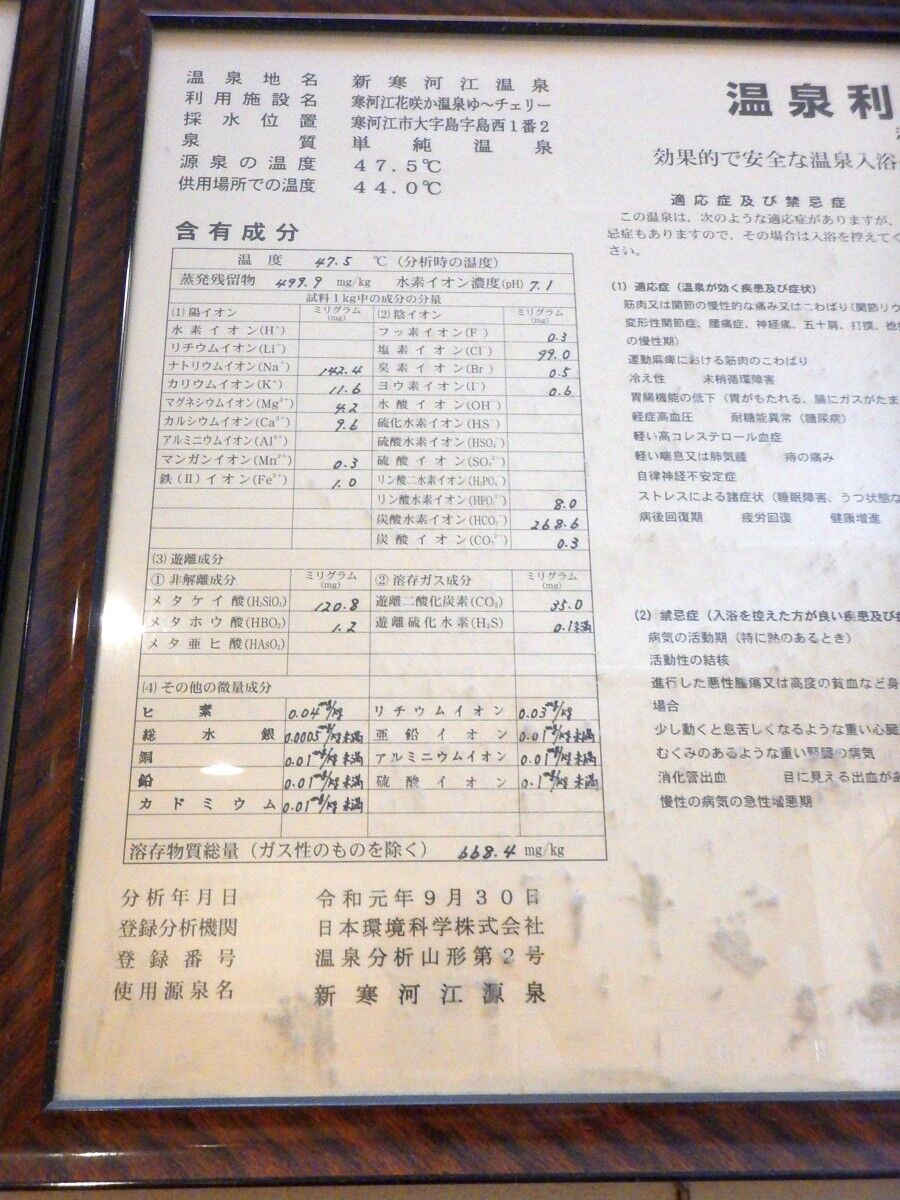 温泉地名 新寒河江温泉
利用施設名 寒河江花咲か温泉ゆ〜チェリー
採水位置 寒河江市大字島字島西1番2
泉質 単純温泉
源泉の温度 47.5℃
供用場所での温度 44.0℃
含有成分
温度 47.5 ℃(分析時の温度)
蒸発残留物 499.9 mg/kg 水素イオン濃度(pH) 7.1
試料1kg中の成分の分量
(1)陽イオン ミリグラム(mg) (2)陰イオン ミリグラム(mg)
水素イオン(H⁺) フッ素イオン(F⁻) 0.3
リチウムイオン(Li⁺) 塩素イオン(Cl⁻) 99.0
ナトリウムイオン(Na⁺) 142.4 臭素イオン(Br⁻) 0.5
カリウムイオン(K⁺) 11.6 ヨウ素イオン(I⁻) 0.6
マグネシウムイオン(Mg²⁺) 4.2 水酸イオン(OH⁻)
カルシウムイオン(Ca²⁺) 9.6 硫化水素イオン(HS⁻)
アルミニウムイオン(Al³⁺) 硫酸水素イオン(HSO₄⁻)
マンガンイオン(Mn²⁺) 0.3 硫酸イオン(SO₄²⁻)
鉄(II)イオン(Fe²⁺) 1.0 リン酸二水素イオン(H₂PO₄⁻)
リン酸水素イオン(HPO₄²⁻) 8.0
炭酸水素イオン(HCO₃⁻) 268.6
炭酸イオン(CO₃²⁻) 0.3
(3)遊離成分
①非解離成分 ミリグラム(mg) ②溶存ガス成分 ミリグラム(mg)
メタケイ酸(H₂SiO₃) 120.8 遊離二酸化炭素(CO₂) 35.0
メタホウ酸(HBO₂) 1.2 遊離硫化水素(H₂S) 0.1未満
メタ亜ヒ酸(HAsO₂)
(4)その他の微量成分
ヒ素 0.04mg/kg リチウムイオン 0.03mg/kg
総水銀 0.0005mg/kg未満 亜鉛イオン 0.01mg/kg未満
銅 0.01mg/kg未満 アルミニウムイオン 0.01mg/kg未満
鉛 0.01mg/kg未満 硫酸イオン 0.1mg/kg未満
カドミウム 0.01mg/kg未満
溶存物質総量(ガス性のものを除く) 668.4 mg/kg
分析年月日 令和元年9月30日
登録分析機関 日本環境科学株式会社
登録番号 温泉分析山形第2号
使用源泉名 新寒河江源泉
温泉利
効果的で安全な温泉入浴
適応症及び禁忌症
この温泉は、次のような適応症がありますが、
忌症もありますので、その場合は入浴を控えてく
さい。
(1)適応症(温泉が効く疾患及び症状)
筋肉又は関節の慢性的な痛み又はこわばり(関節リウ
変形性関節症、腰痛症、神経痛、五十肩、打撲、捻
の慢性期)
運動麻痺における筋肉のこわばり
冷え性 末梢循環障害
胃腸機能の低下(胃がもたれる、腸にガスがたま
軽症高血圧 耐糖能異常(糖尿病)
軽い高コレステロール血症
軽い喘息又は肺気腫 痔の痛み
自律神経不安定症
ストレスによる諸症状(睡眠障害、うつ状態な
病後回復期 疲労回復 健康増進
(2)禁忌症(入浴を控えた方が良い疾患及び
病気の活動期(特に熱のあるとき)
活動性の結核
進行した悪性腫瘍又は高度の貧血など身
場合
少し動くと息苦しくなるような重い心臓
むくみのあるような重い腎臓の病気
消化管出血 目に見える出血があ
慢性の病気の急性増悪期